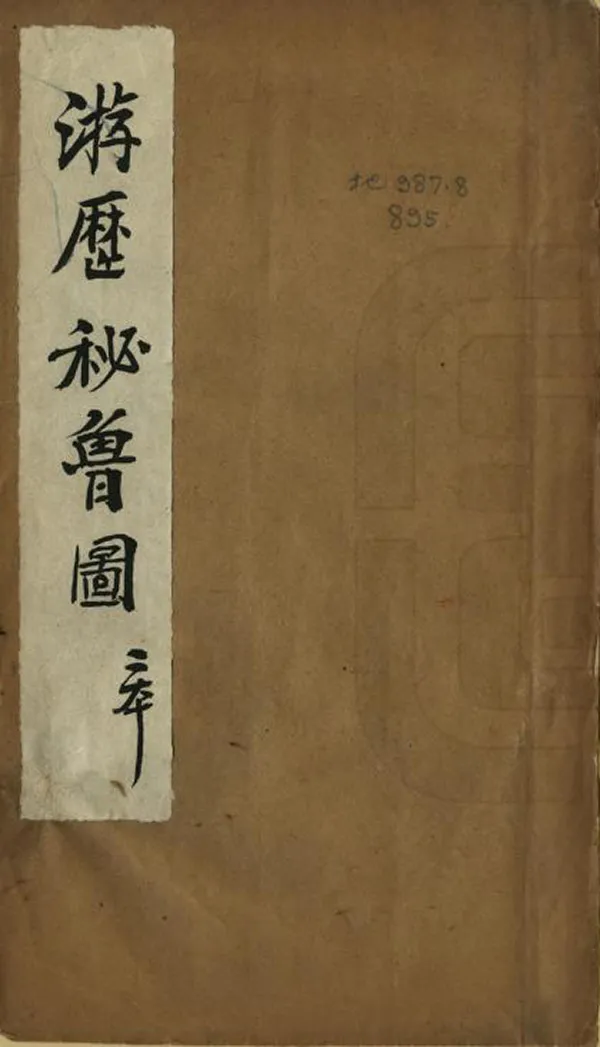 游歷秘魯圖
地 987.8
895